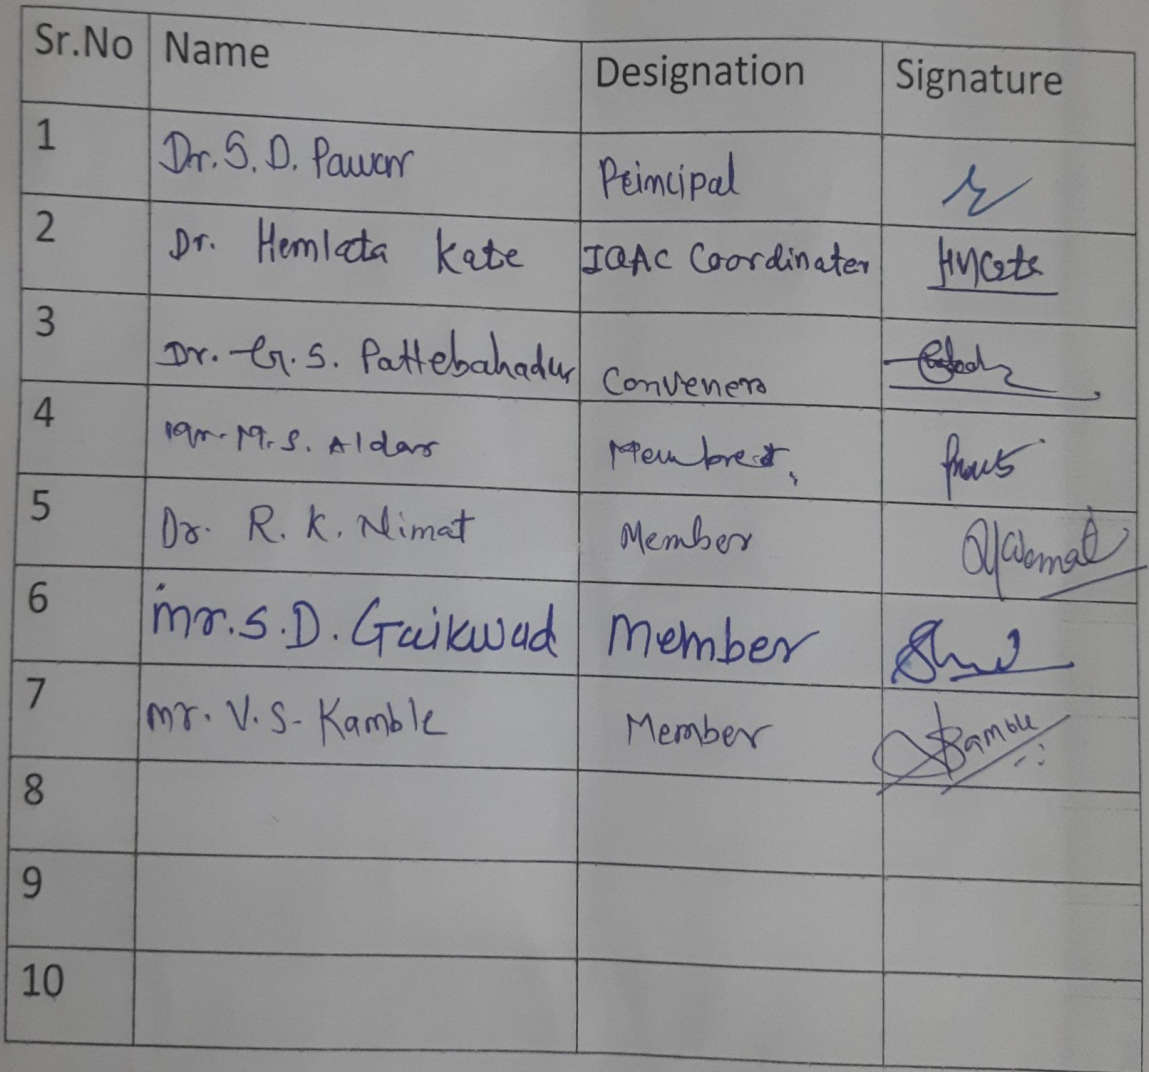 Sr.No Name Designation Signature
1 Dr. S. D. Pawar Principal
2 Dr. Hemlata Kate IQAC Coordinater HVKate
3 Dr. G. S. Pattebahadur Convener
4 Mr. M. S. Aldar Member
5 Dr. R. K. Nimat Member
6 Mr. S. D. Gaikwad Member
7 Mr. V. S. Kamble Member Kamble
8
9
10